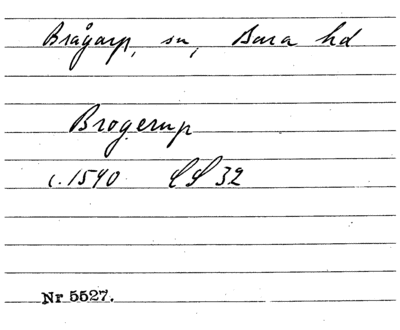 Brågarp, sn, Bara hd
Brogerup
c. 1540 LS 32
Nr 5527.